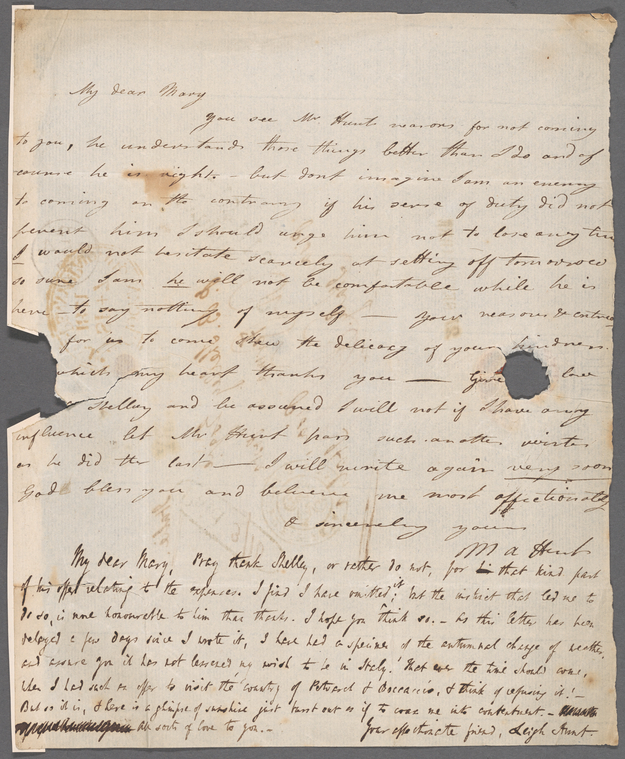 My dear Mary
You see Mr Hunts reasons for not coming
to you, he understands those things better than I do and of
course he is right. - but dont imagine I am an enemy
to coming on the contrary if his sense of duty did not
prevent him I should urge him not to lose any time
I would not hesitate scarcely at setting off tomorrow
so sure I am he will not be comfortable while he is
here - to say nothing of myself - your reasons &
for us to come shew the delicacy of your kindness
which my heart thanks you — Give love
Shelley and be assured I will not if I have any
influence let Mr Hunt pass such another winter
as he did the last - I will write again very soon
God bless you and believe me most affectionately
& sincerely yours
M A Hunt
My dear Mary, Pray thank Shelley, or rather do not, for that kind part
of his offer relating to the expences. I find I have omitted it; but the instinct that led me to
do so, is more honourable to him than thanks. I hope you think so. - As this letter has been
delayed a few days since I wrote it, I have had a specimen of the autumnal change of weather,
and assure you it has not lessened my wish to be in Italy. That ever the time should come,
when I had such an offer to visit the country of Petrarch & Boccaccio, & think of refusing it! -
But so it is, & here is a glimpse of sunshine just burst out as if to coax me into contentment. -
All sorts of love to you. - Your affectionate friend, Leigh Hunt.